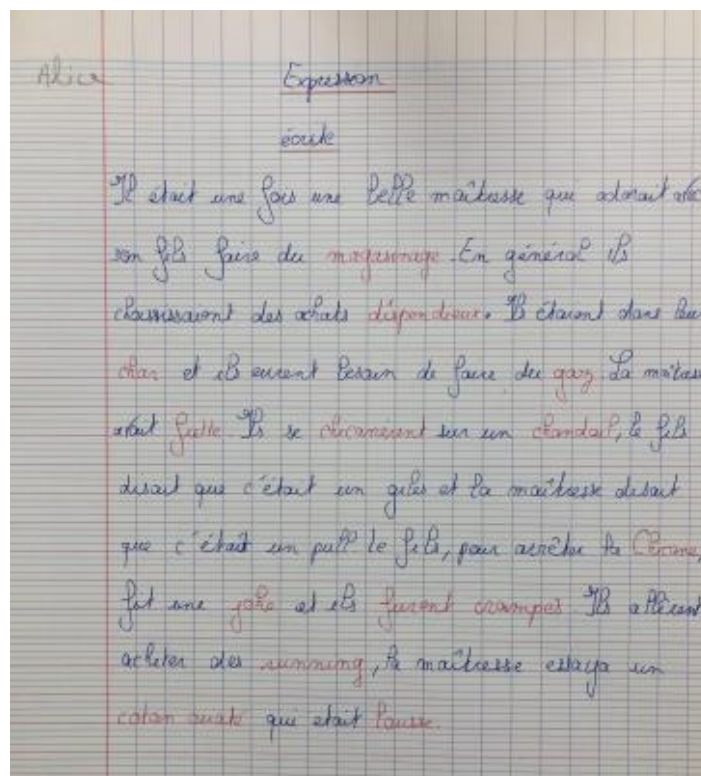 Alice
Expression
écrite
Il était une fois une belle maîtresse qui adorait avec
son fils faire du magasinage. En général ils
choississaient des achats dispendieux. Ils étaient dans leur
char et ils eurent besoin de faire du gaz. La maîtresse
était
Ils se chicanèrent sur un chandail, le fils
disait que c'était un gilet et la maîtresse disait
que c'était un pull le fils, pour arrêter la Chicane,
fit une joke et ils furent crampés. Ils allèrent
acheter des running, la maîtresse essaya un
coton ouaté qui était lousse.